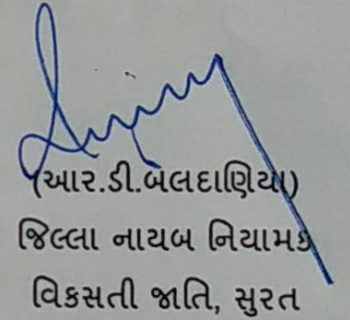 (આર.ડી.બલદાણિયા)
જિલ્લા નાયબ નિયામક
વિકસતી જાતિ, સુરત